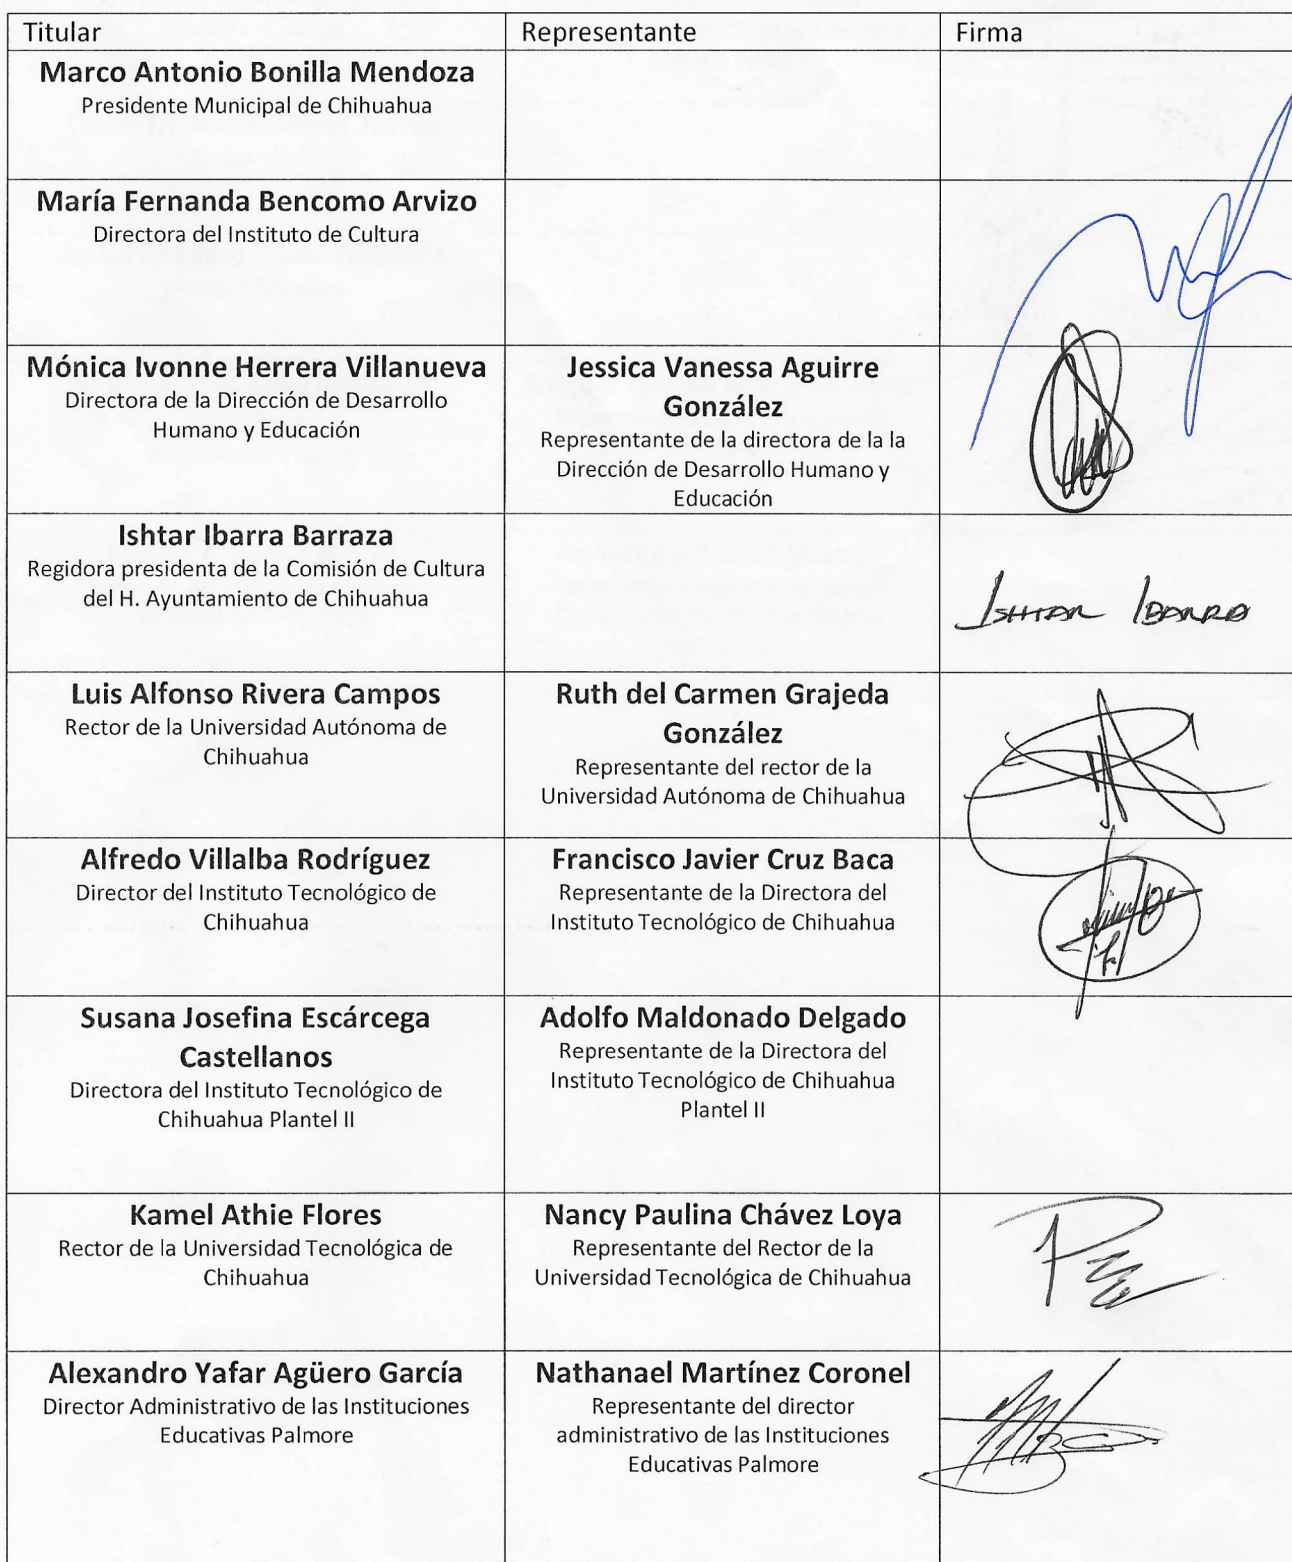 Titular Representante Firma
Marco Antonio Bonilla Mendoza
Presidente Municipal de Chihuahua
María Fernanda Bencomo Arvizo
Directora del Instituto de Cultura
Mónica Ivonne Herrera Villanueva
Directora de la Dirección de Desarrollo
Humano y Educación
Jessica Vanessa Aguirre
González
Representante de la directora de la la
Dirección de Desarrollo Humano y
Educación
Ishtar Ibarra Barraza
Regidora presidenta de la Comisión de Cultura
del H. Ayuntamiento de Chihuahua
ISHTAR IBARRA
Luis Alfonso Rivera Campos
Rector de la Universidad Autónoma de
Chihuahua
Ruth del Carmen Grajeda
González
Representante del rector de la
Universidad Autónoma de Chihuahua
Alfredo Villalba Rodríguez
Director del Instituto Tecnológico de
Chihuahua
Francisco Javier Cruz Baca
Representante de la Directora del
Instituto Tecnológico de Chihuahua
Susana Josefina Escárcega
Castellanos
Directora del Instituto Tecnológico de
Chihuahua Plantel II
Adolfo Maldonado Delgado
Representante de la Directora del
Instituto Tecnológico de Chihuahua
Plantel II
Kamel Athie Flores
Rector de la Universidad Tecnológica de
Chihuahua
Nancy Paulina Chávez Loya
Representante del Rector de la
Universidad Tecnológica de Chihuahua
Alexandro Yafar Agüero García
Director Administrativo de las Instituciones
Educativas Palmore
Nathanael Martínez Coronel
Representante del director
administrativo de las Instituciones
Educativas Palmore